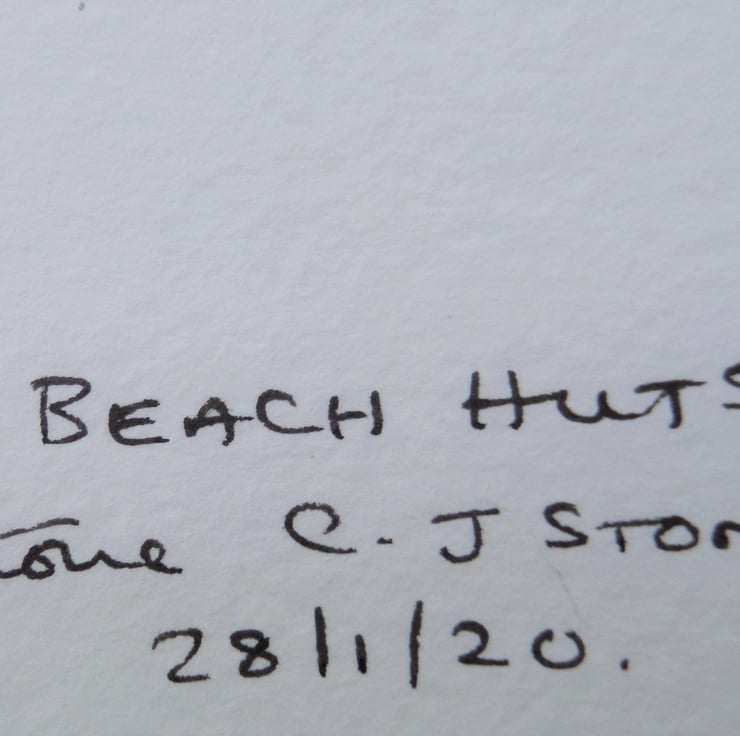 BEACH HUTS
tone C. J STON
28/1/20.